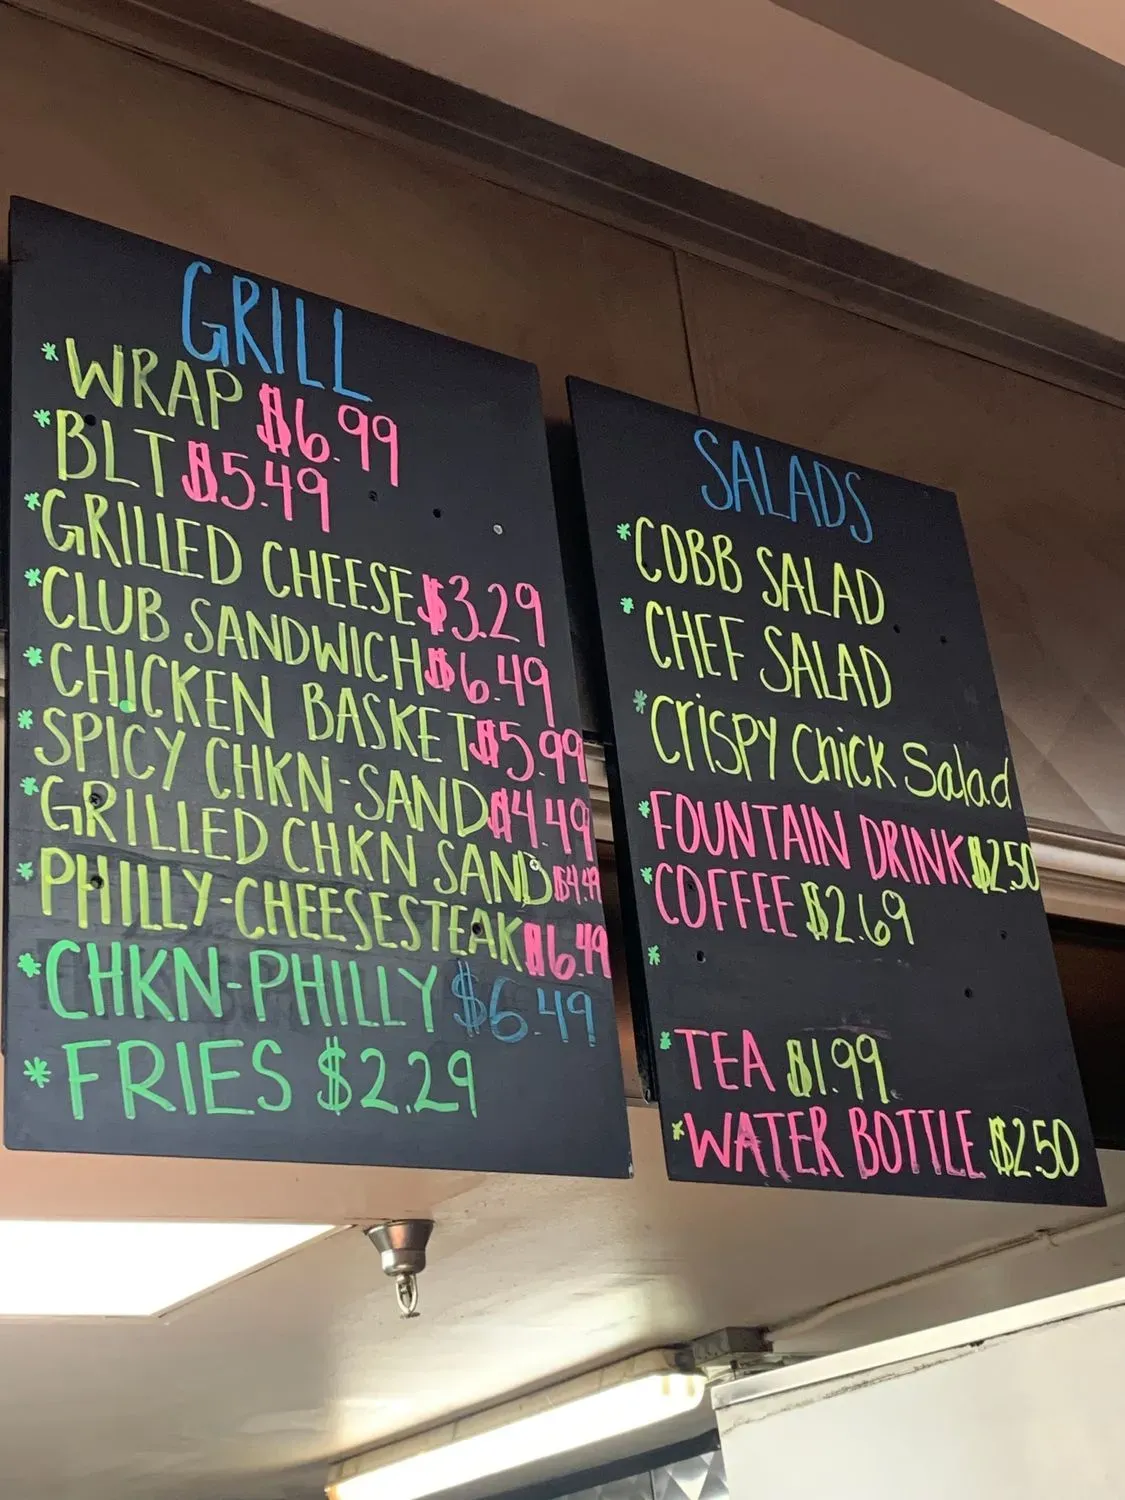 GRILL
*WRAP $6.99
*BLT $5.49
*GRILLED CHEESE $3.29
*CLUB SANDWICH $6.49
*CHICKEN BASKET $5.99
*SPICY CHKN-SAND $4.49
*GRILLED CHKN SAND $4.49
*PHILLY-CHEESESTEAK $6.49
*CHKN-PHILLY $6.49
*FRIES $2.29
SALADS
*COBB SALAD
*CHEF SALAD
*CRISPY CHICK Salad
*FOUNTAIN DRINK $2.50
*COFFEE $2.69
*
*TEA $1.99
*WATER BOTTLE $2.50